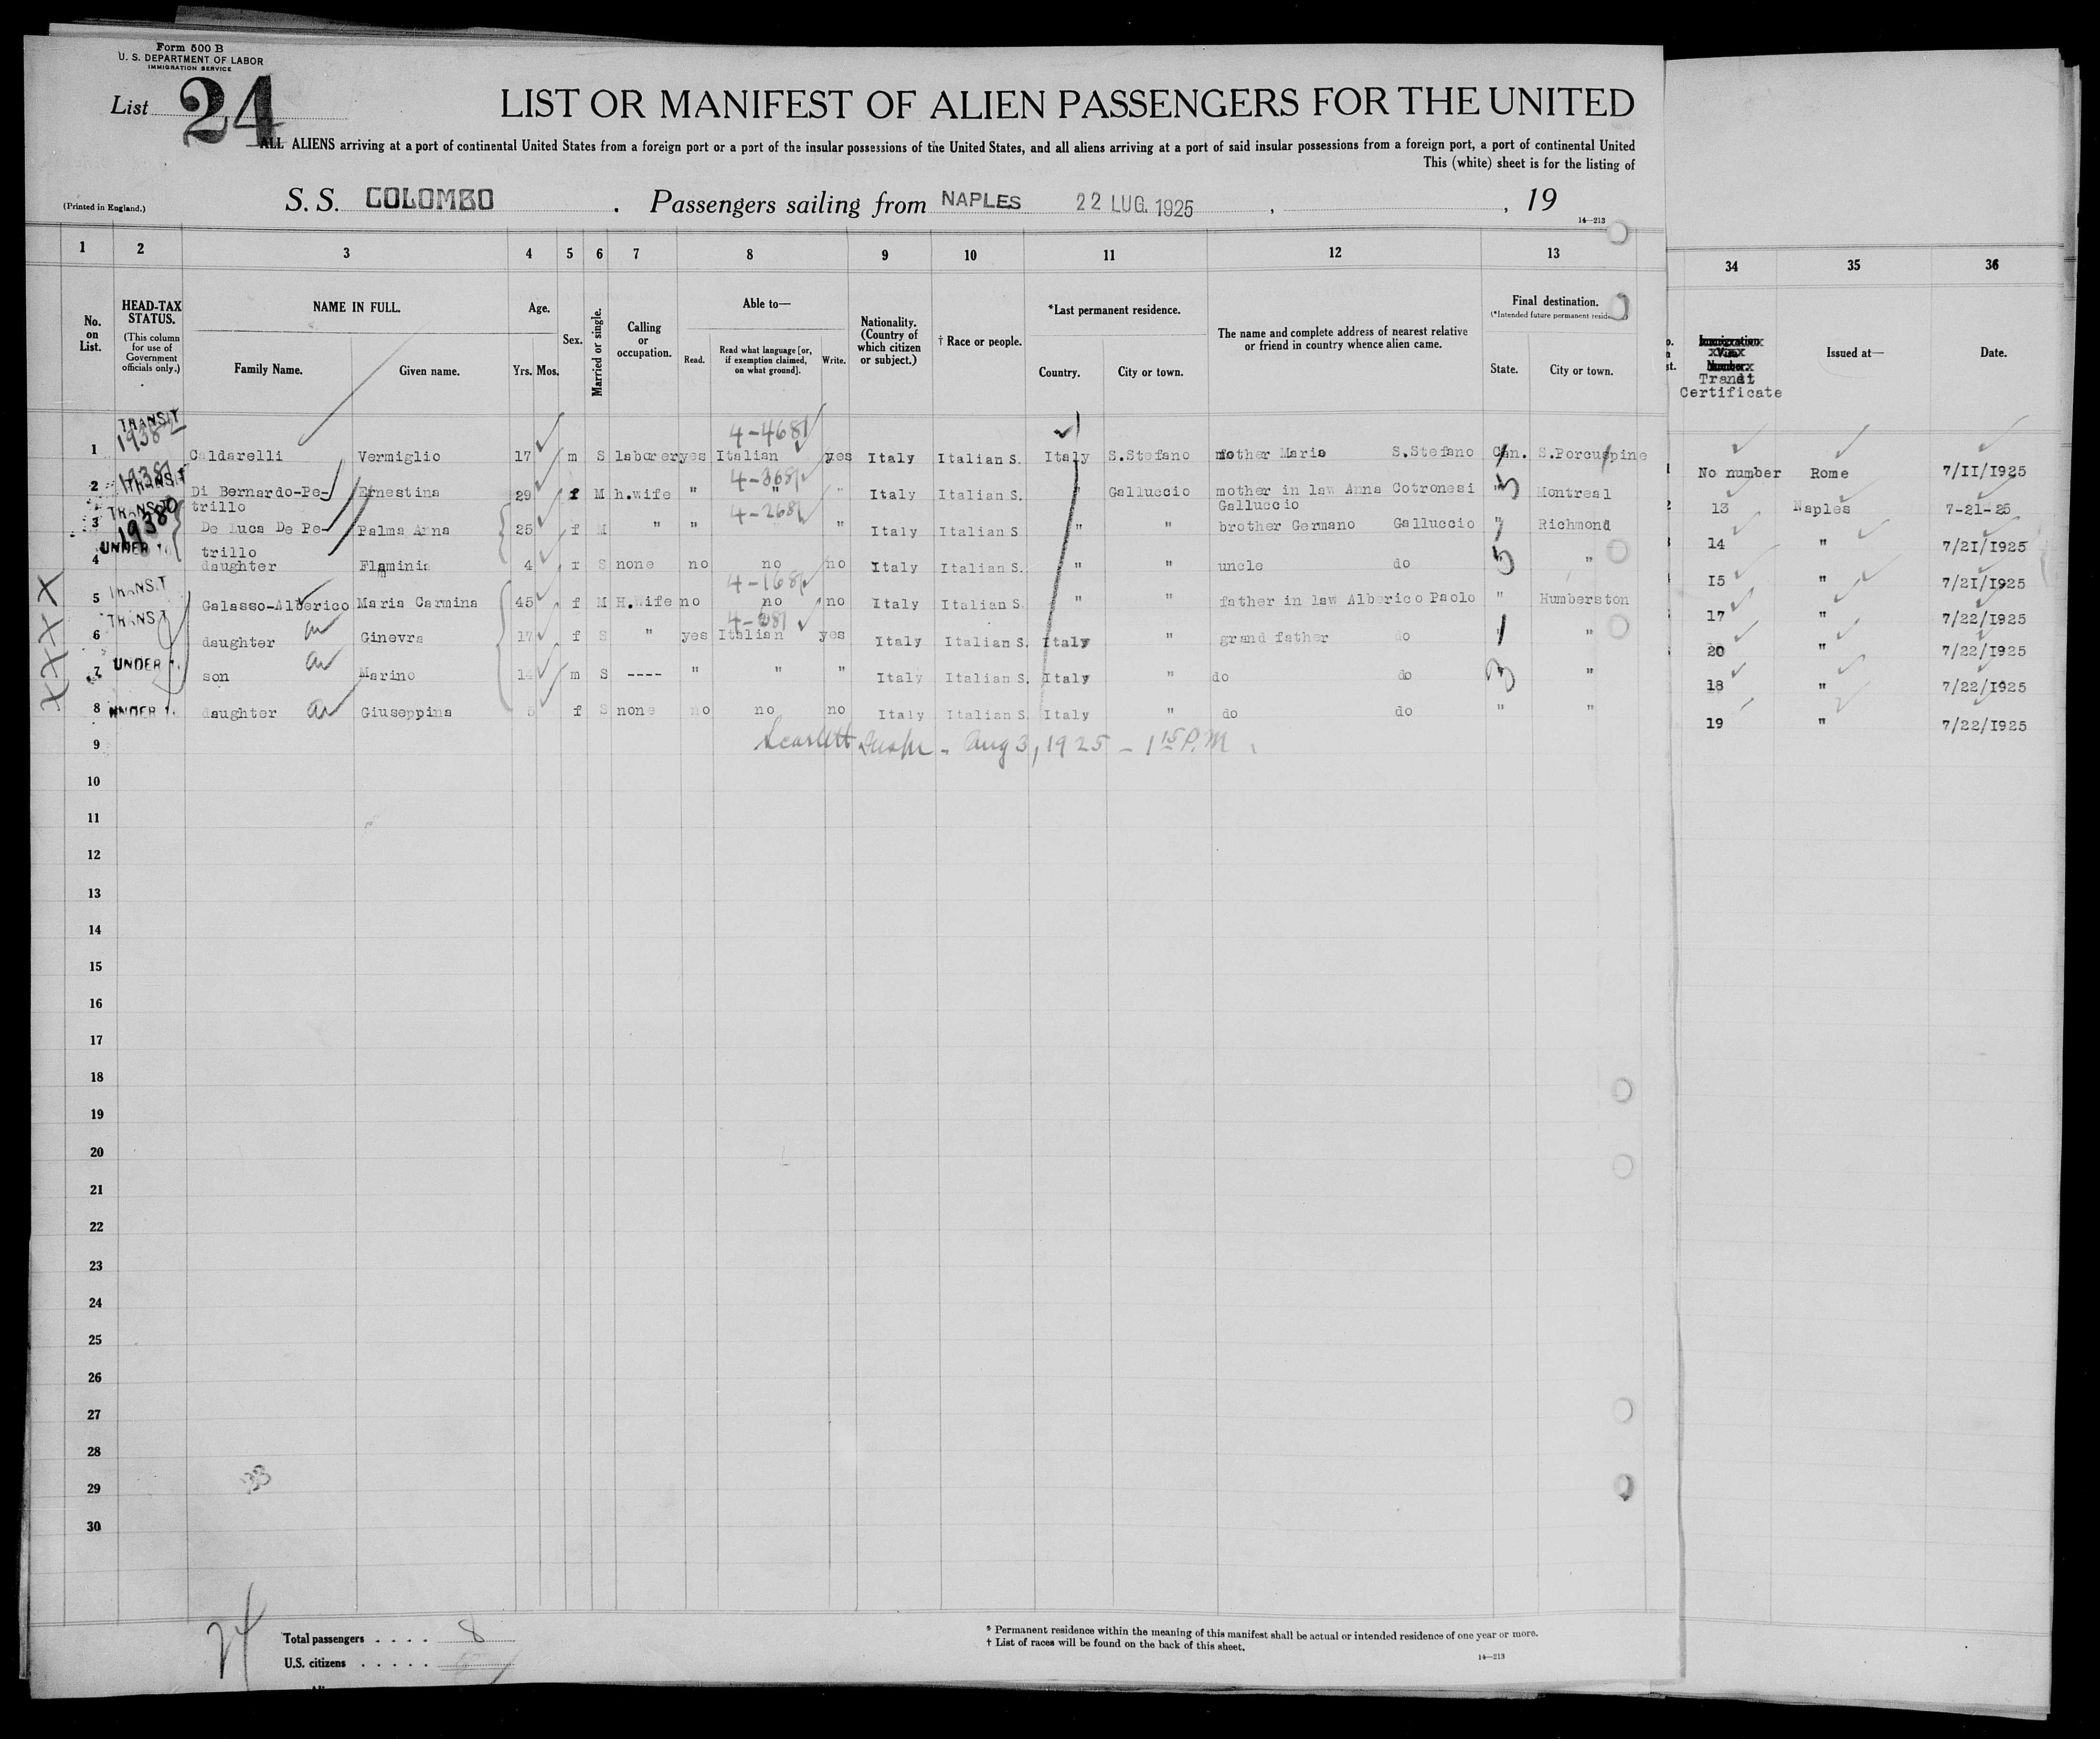 Form 500 B
U. S. DEPARTMENT OF LABOR
IMMIGRATION SERVICE
List 24
LIST OR MANIFEST OF ALIEN PASSENGERS FOR THE UNITED
ALL ALIENS arriving at a port of continental United States from a foreign port or a port of the insular possessions of the United States, and all aliens arriving at a port of said insular possessions from a foreign port, a port of continental United
This (white) sheet is for the listing of
(Printed in England.)
S. S. COLOMBO . Passengers sailing from NAPLES 22 LUG. 1925 , , 19
14—213
1 2 3 4 5 6 7 8 9 10 11 12 13 34 35 36
No. on List.
HEAD-TAX STATUS. (This column for use of Government officials only.)
NAME IN FULL. Family Name. Given name.
Age. Yrs. Mos.
Sex.
Married or single.
Calling or occupation.
Able to— Read. Read what language [or, if exemption claimed, on what ground]. Write.
Nationality. (Country of which citizen or subject.)
† Race or people.
*Last permanent residence. Country. City or town.
The name and complete address of nearest relative or friend in country whence alien came.
Final destination. (*Intended future permanent State. City or town.
Trandt Certificate
Issued at—
Date.
TRANSIT
4-4681
1 Caldarelli Vermiglio 17 m S laborer yes Italian yes Italy Italian S. Italy S.Stefano mother Maria S.Stefano Can. S.Porcuspine No number Rome 7/II/1925
TRANSIT
4-3681
2 Di Bernardo-Pe- Ernestina 29 f M h.wife " " " Italy Italian S. " Galluccio mother in law Anna Cotronesi " Montreal 13 Naples 7-21-25
trillo Galluccio
TRANSIT 19380
4-2681
3 De Luca De Pe- Palma Anna 25 f M " " " Italy Italian S. " " brother Germano Galluccio " Richmond 14 " 7/21/1925
trillo
UNDER
4 daughter Flaminia 4 f S none no no no Italy Italian S. " " uncle do 5 " I5 " 7/2I/1925
TRANSIT
4-1681
5 Galasso-Alberico Maria Carmina 45 f M H.Wife no no no Italy Italian S. " " father in law Alberico Paolo " Humberston 17 " 7/22/1925
TRANSIT
6 daughter Ginevra 17 f S " yes Italian yes Italy Italian S. Italy " grand father do " " 20 " 7/22/1925
UNDER
7 son Marino 14 m S ---- " " " Italy Italian S. Italy " do do 3 " 18 " 7/22/1925
UNDER
8 daughter Giuseppina 5 f S none no no no Italy Italian S. Italy " do do " " 19 " 7/22/1925
XXXX
Scarlett Insp. - Aug 3, 1925 - 1 15 P.M.
9
10
11
12
13
14
15
16
17
18
19
20
21
22
23
24
25
26
27
28
29
30
24
Total passengers . . . . 8
U.S. citizens . . . . .
* Permanent residence within the meaning of this manifest shall be actual or intended residence of one year or more.
† List of races will be found on the back of this sheet.
14—213